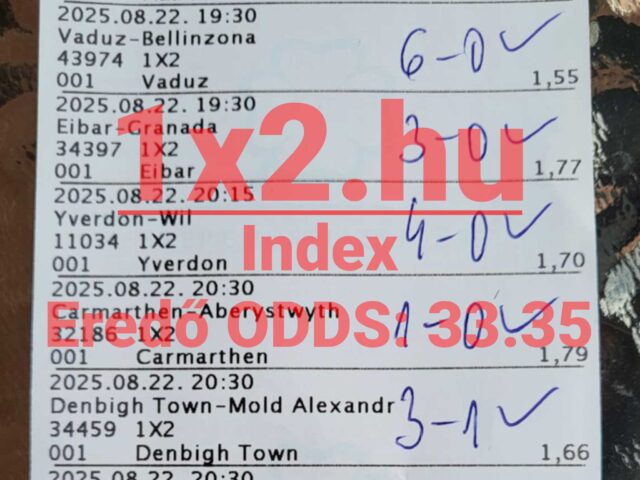 2025.08.22. 19:30
Vaduz-Bellinzona
43974 1X2
6-0 ✓
001 Vaduz 1,55
2025.08.22. 19:30
Eibar-Granada
34397 1X2
3-0 ✓
001 Eibar 1,77
1x2.hu
2025.08.22. 20:15
Yverdon-Wil
11034 1X2
4-0 ✓
001 Yverdon 1,70
Index
2025.08.22. 20:30
Carmarthen-Aberystwyth
32186 1X2
1-0 ✓
001 Carmarthen 1,79
Eredő ODDS: 33.35
2025.08.22. 20:30
Denbigh Town-Mold Alexandr
34459 1X2
3-1 ✓
001 Denbigh Town 1,66
2025.08.22. 20:30